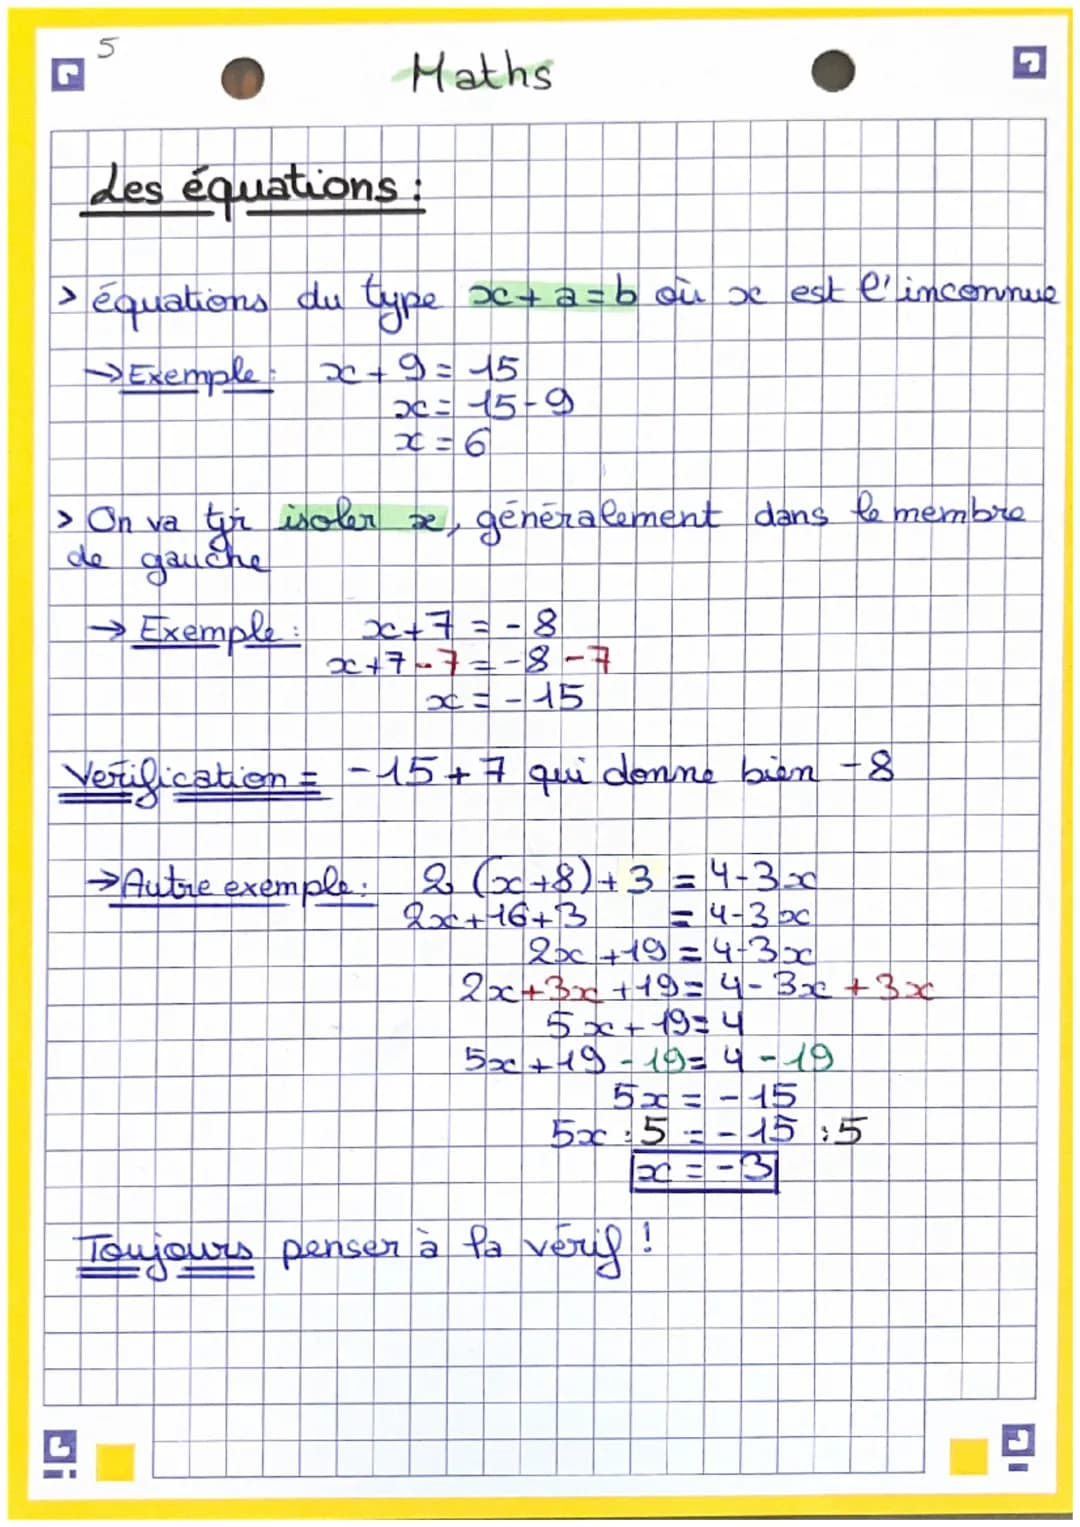 5
Maths
Les équations :
> équations du type x + a = b où x est l'inconnue
→ Exemple : x + 9 = 15
x = 15 - 9
x = 6
> On va tjr isoler x, généralement dans le membre
de gauche
→ Exemple : x + 7 = - 8
x + 7 - 7 = - 8 - 7
x = - 15
Vérification = - 15 + 7 qui donne bien - 8
→ Autre exemple : 2 (x + 8) + 3 = 4 - 3x
2x + 16 + 3 = 4 - 3x
2x + 19 = 4 - 3x
2x + 3x + 19 = 4 - 3x + 3x
5x + 19 = 4
5x + 19 - 19 = 4 - 19
5x = - 15
5x : 5 = - 15 : 5
x = - 3
Toujours penser à la vérif !